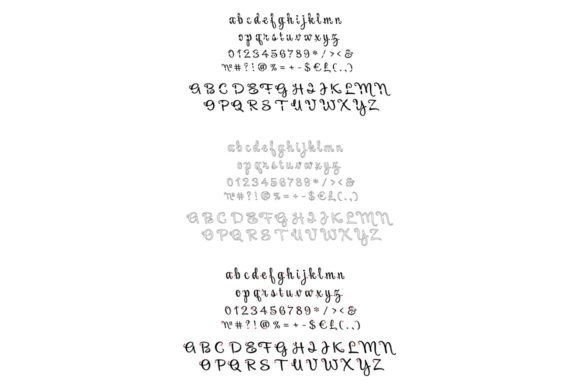 abcdefghijklmn
opqrstuvwxyz
0123456789*/><&
№#?!@%=+-$€£(.,)
ABCDEFGHIJKLMN
OPQRSTUVWXYZ
abcdefghijklmn
opqrstuvwxyz
0123456789*/><&
№#?!@%=+-$€£(.,)
ABCDEFGHIJKLMN
OPQRSTUVWXYZ
abcdefghijklmn
opqrstuvwxyz
0123456789*/><&
№#?!@%=+-$€£(.,)
ABCDEFGHIJKLMN
OPQRSTUVWXYZ